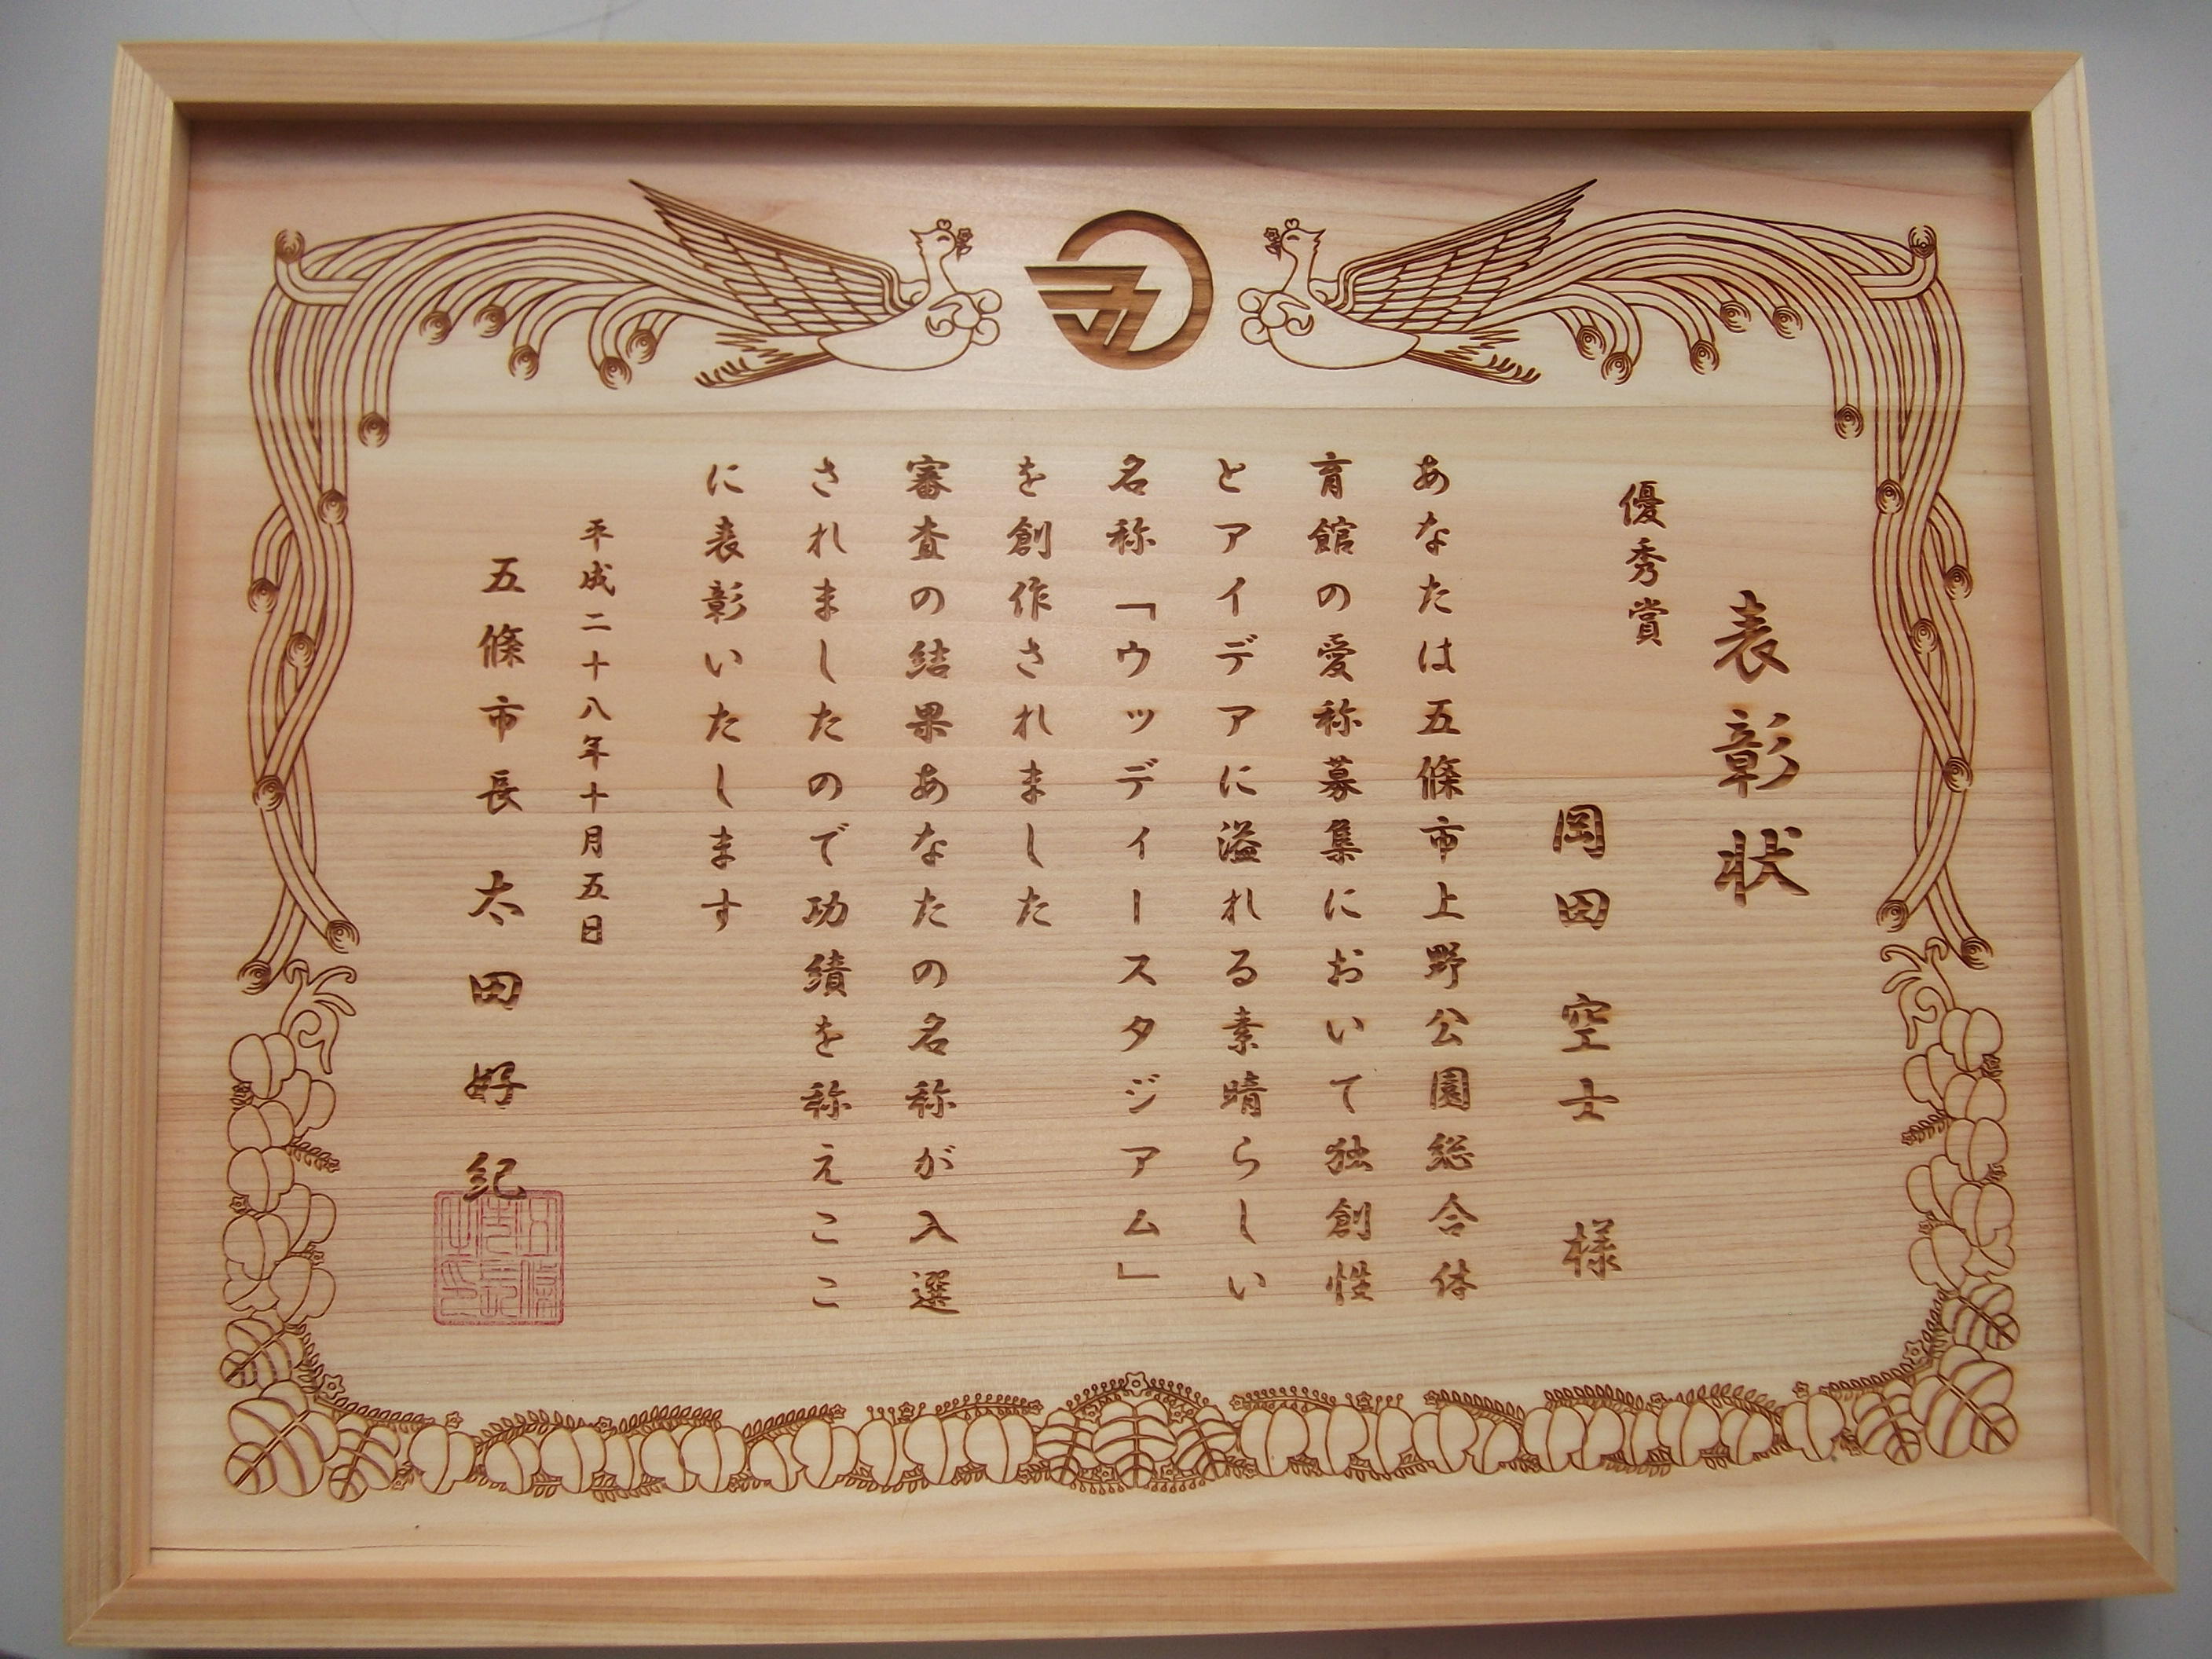 表彰状
優秀賞
岡田 空士 様
あなたは五條市上野公園総合体
育館の愛称募集において独創性
とアイデアに溢れる素晴らしい
名称「ウッディースタジアム」
を創作されました
審査の結果あなたの名称が入選
されましたので功績を称えここ
に表彰いたします
平成二十八年十月五日
五條市長 太田好紀